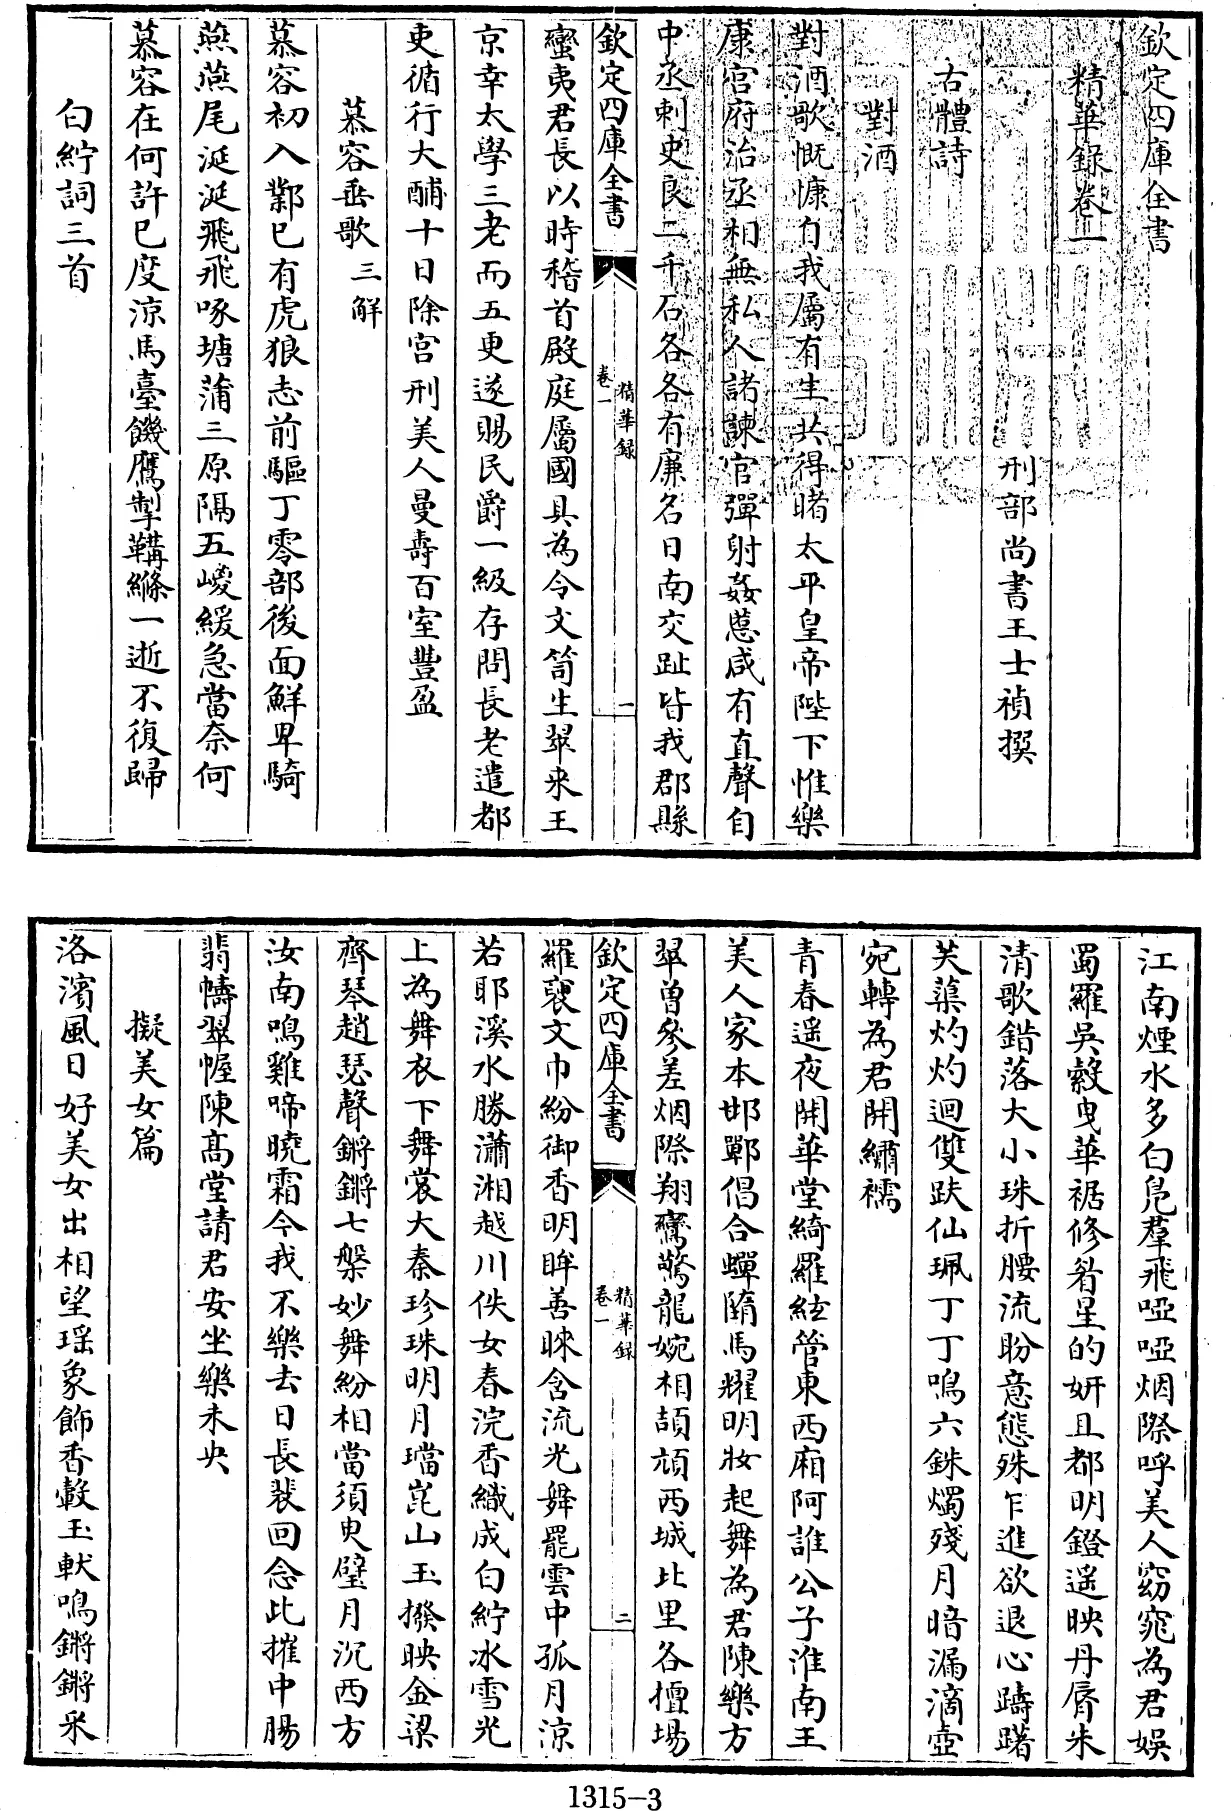 欽定四庫全書
精華錄卷一
刑部尚書王士禎撰
古體詩
對酒
對酒歌慨慷自我屬有生共得睹太平皇帝陛下惟樂
康官府治丞相無私人諸諫官彈射姦慝咸有直聲自
中丞刺史良二千石各各有廉名日南交趾皆我郡縣
欽定四庫全書
精華録
卷一
一
蠻夷君長以時稽首殿庭屬國具為令文笥生翠來王
京幸太學三老而五更遂賜民爵一級存問長老遣都
吏循行大酺十日除宮刑美人曼壽百室豐盈
慕容垂歌三解
慕容初入鄴已有虎狼志前驅丁零部後面鮮卑騎
燕燕尾涎涎飛飛啄塘蒲三原隔五嵕緩急當奈何
慕容在何許已度涼馬臺饑鷹掣鞲絛一逝不復歸
白紵詞三首
江南煙水多白凫羣飛啞啞烟際呼美人窈窕為君娛
蜀羅吳縠曳華裾修眉星的妍且都明鐙遥映丹脣朱
清歌錯落大小珠折腰流盼意態殊乍進欲退心躊躇
芙蕖灼灼迴雙趺仙珮丁丁鳴六銖燭殘月暗漏滴壺
宛轉為君開繡襦
青春遥夜開華堂綺羅絃管東西廂阿誰公子淮南王
美人家本邯鄲倡合蟬隨馬耀明妝起舞為君陳樂方
翠曽參差烟際翔鸞驚龍婉相頡頏西城北里各擅場
欽定四庫全書
精華録
卷一
二
羅襃文巾紛御香明眸善睞含流光舞罷雲中孤月涼
若耶溪水勝瀟湘越川佚女春浣香織成白紵冰雪光
上為舞衣下舞裳大秦珍珠明月璫崑山玉撥映金梁
齊琴趙瑟聲鏘鏘七槃妙舞紛相當須臾璧月沉西方
汝南鳴雞啼曉霜今我不樂去日長裴回念此摧中腸
翡幬翠幄陳髙堂請君安坐樂未央
擬美女篇
洛濱風日好美女出相望瑶象飾香轂玉軑鳴鏘鏘采
1315-3